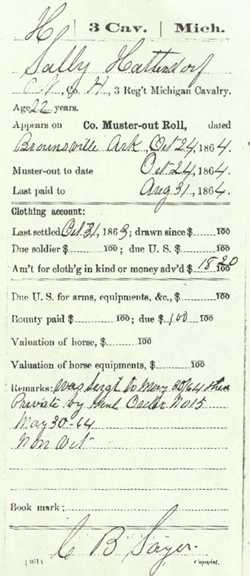 H | 3 Cav. | Mich.
Sally Hattendorf
Co. H, 3 Reg't Michigan Cavalry.
Age 22 years.
Appears on Co. Muster-out Roll, dated
Brownsville Ark, Oct 24, 1864.
Muster-out to date Oct 24, 1864.
Last paid to Aug 31, 1864.
Clothing account:
Last settled Oct 31, 1863; drawn since $ 100
Due soldier $ 100; due U. S. $ 100
Am't for cloth'g in kind or money adv'd $ 18 20
Due U. S. for arms, equipments, &c., $ 100
Bounty paid $ 100; due $ 100 100
Valuation of horse, $ 100
Valuation of horse equipments, $ 100
Remarks: Was Sergt to May 30/64 then
Private by Order No 15
May 30-64
Non Vet
Book mark:
C B Sayer
(361) Copyist.